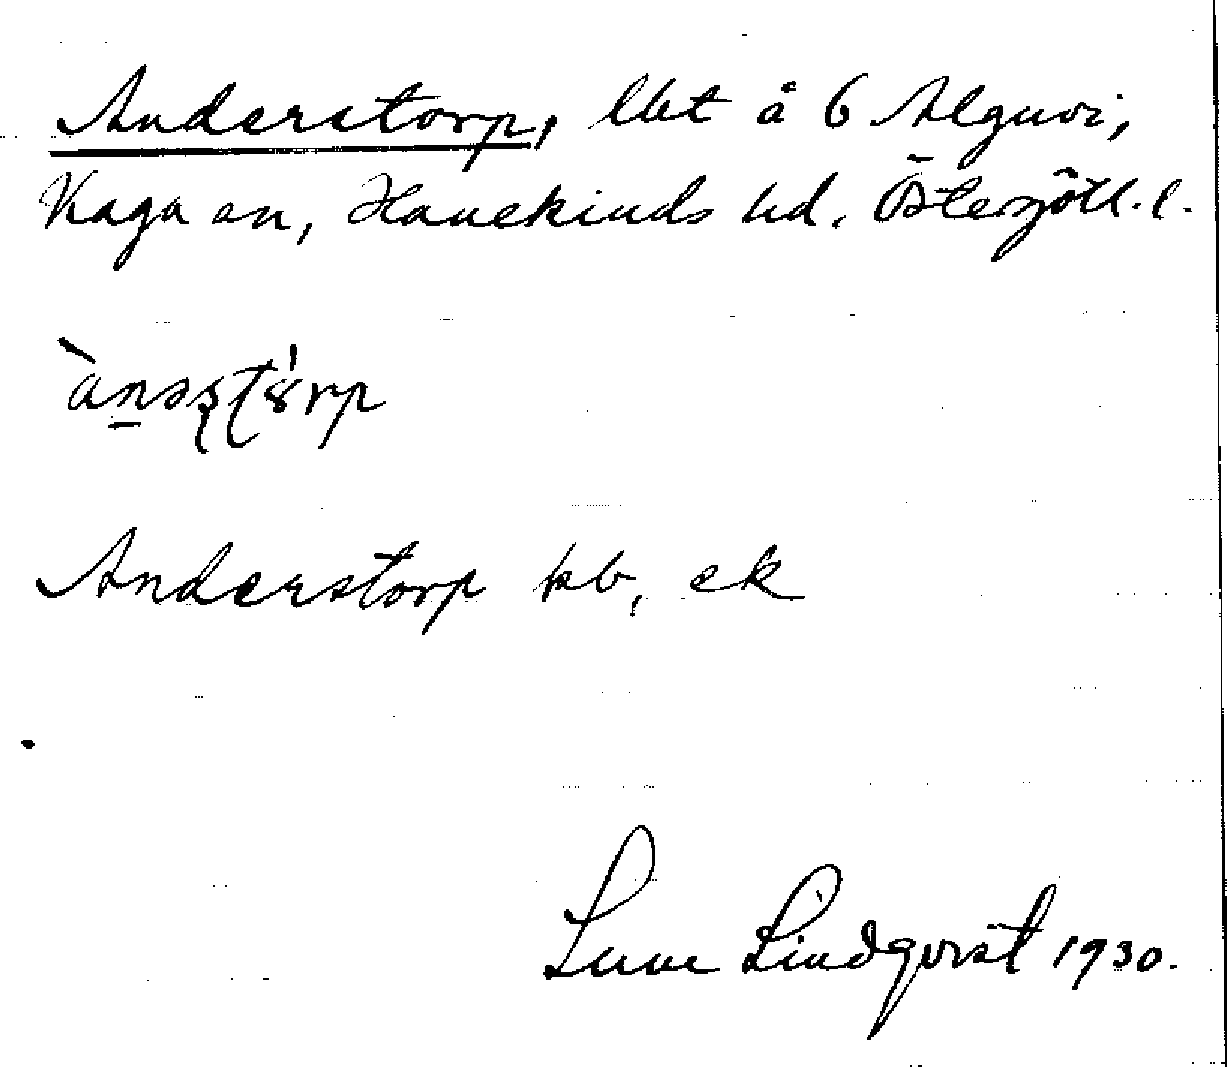 Anderstorp, lht å 6 Alguvi,
Kaga sn, Hanekinds hd. Östergötl. l.
`anəʂʈ8rp
Anderstorp kb, ek
Sune Lindqvist 1930.